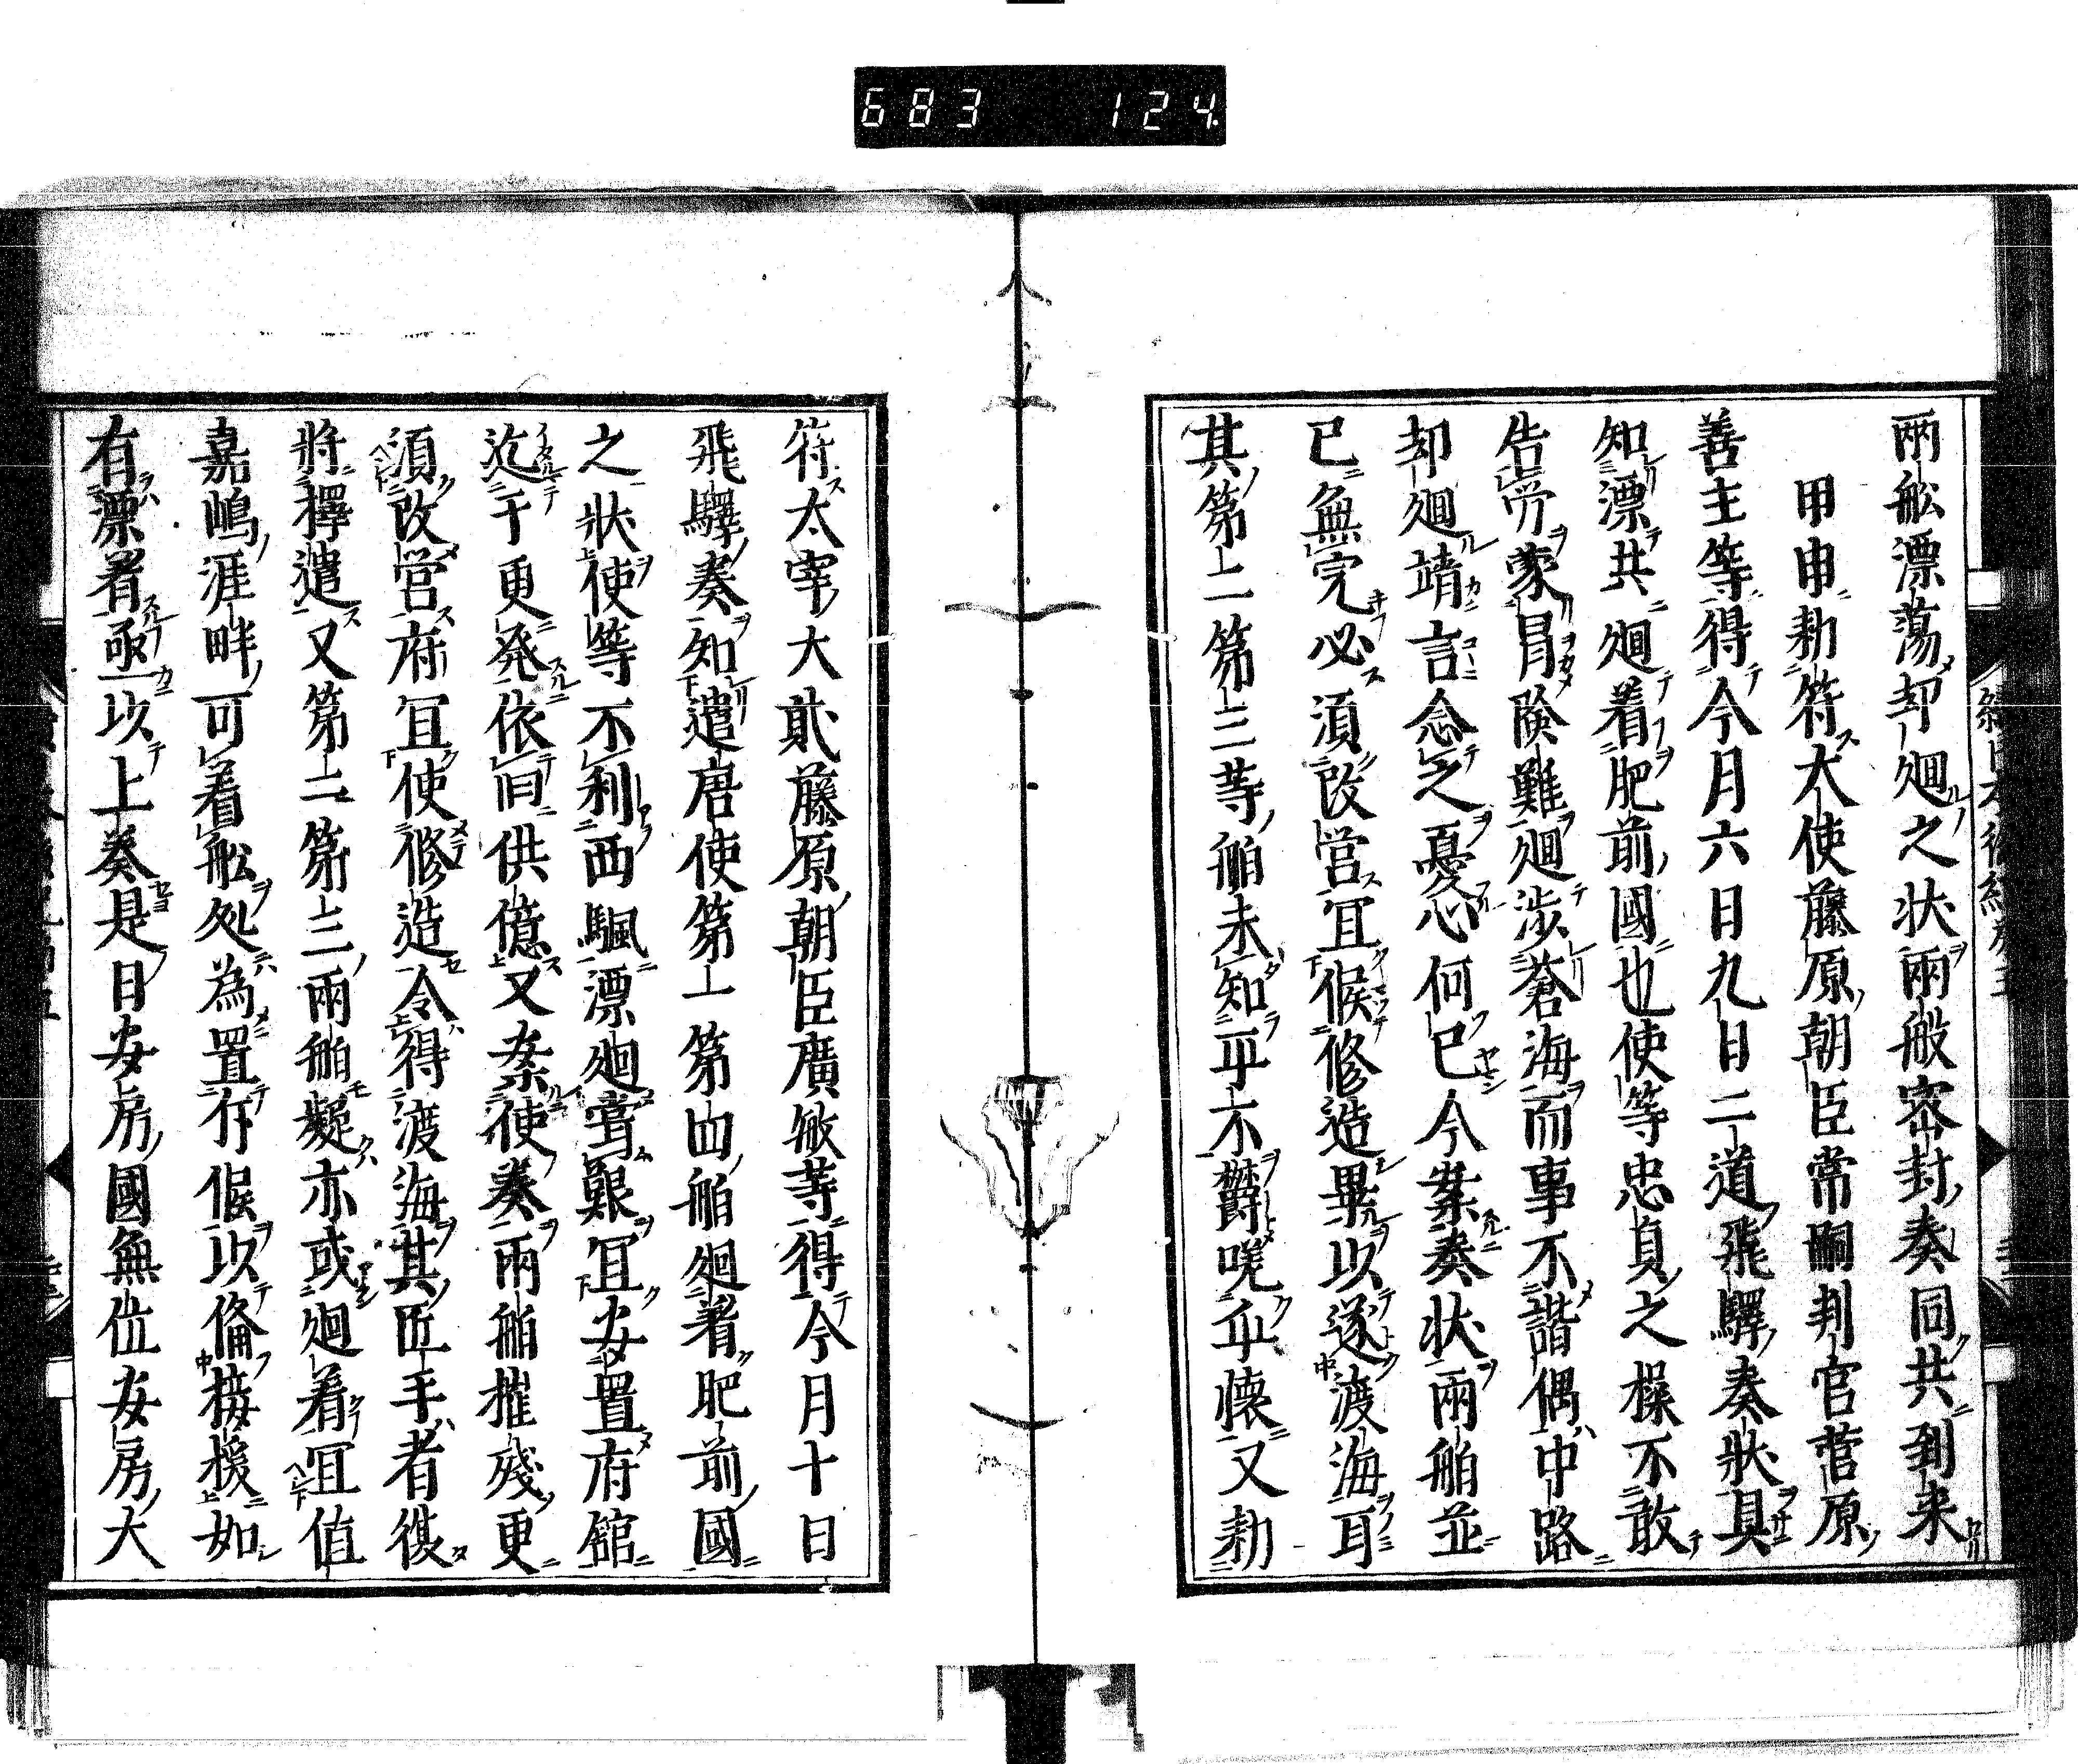 683 124
兩舩漂蕩却𢌞之状兩般密封奏同共到来
甲申勅符大使藤原朝臣常嗣判官菅原
善主等得今月六日九日二道飛驛奏狀具
知漂共廻着肥前國也使等忠貞之操不敢
告労蒙冒険難廻渉蒼海而事不諧偶中路
却廻靖言念之憂心何已今案奏状兩舶並
已無完必須改営冝候修造畢以遂渡海耳
其第二第三等舶未知平不欝咲在懐又勅
符太宰大貳藤原朝臣廣敏等得今月十日
飛驛奏知遣唐使第一第四舶廻着肥前國
之狀使等不利西颿漂廻甞艱冝安置府舘
迄于更発依旧供億又案使奏兩舶摧殘更
須改営府冝使修造令得渡海其匠手者復
將擇遣又第二第三兩舶疑亦或廻着冝值
嘉嶋涯畔可着舩処為置存候以俻接援如
有漂着亟以上奏是日安房國無位安房大